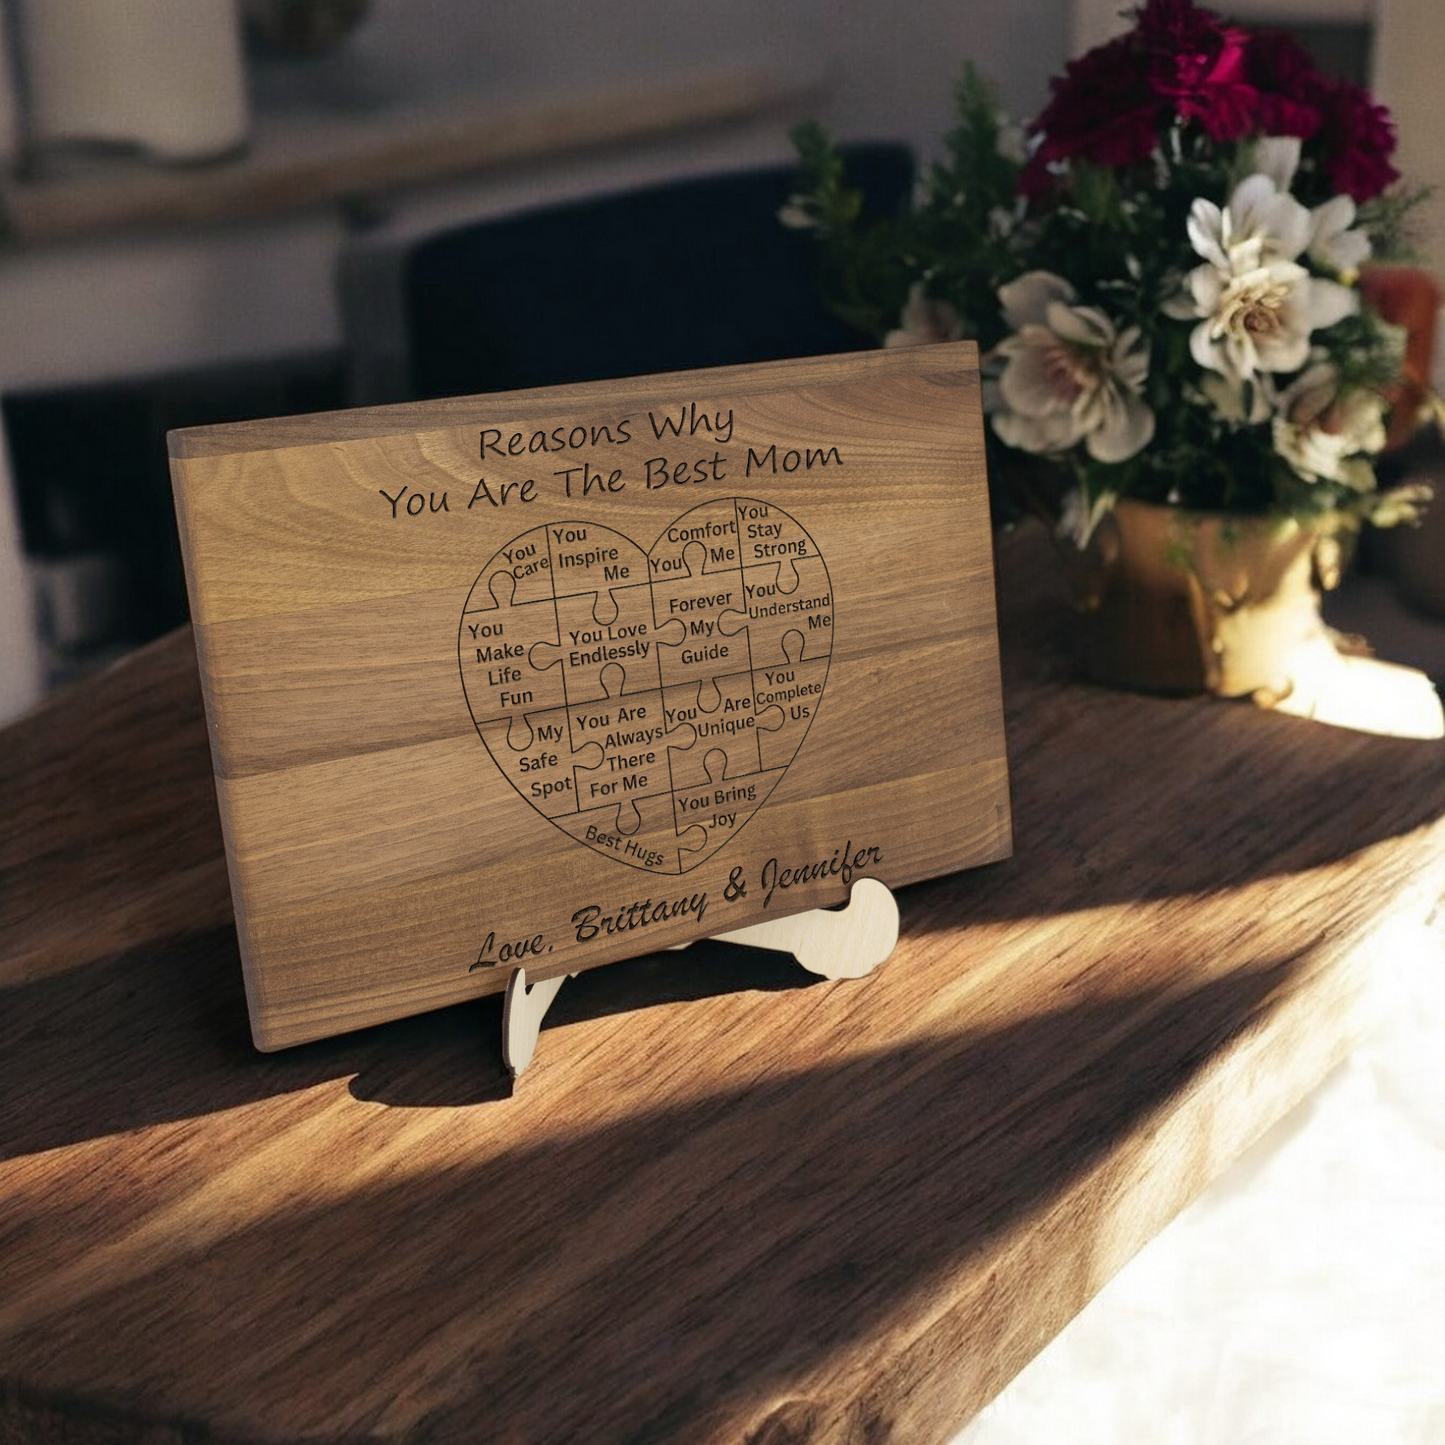 Reasons Why
You Are The Best Mom
You
Care
You
Inspire
Me
Comfort
You Me
You
Stay
Strong
You
Make
Life
Fun
You Love
Endlessly
Forever
My
Guide
You
Understand
Me
My
Safe
Spot
You Are
Always
There
For Me
You Are
Unique
You
Complete
Us
Best Hugs
You Bring
Joy
Love, Brittany & Jennifer